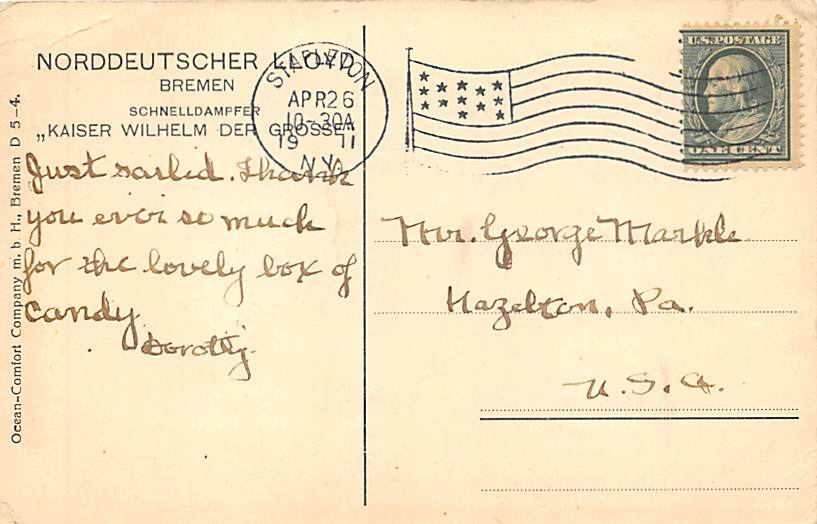 NORDDEUTSCHER LLOYD
BREMEN
SCHNELLDAMPFER
„KAISER WILHELM DER GROSSE"
Just sailed. Thank
you ever so much
for the lovely box of
candy
Dorothy.
Ocean-Comfort Company m. b. H., Bremen D 5-4.
STAPLETON
APR 26
10-30A
19 11
N.Y.
U.S. POSTAGE
ONE CENT
Mr. George Markle
Hazelton, Pa.
U. S. A.